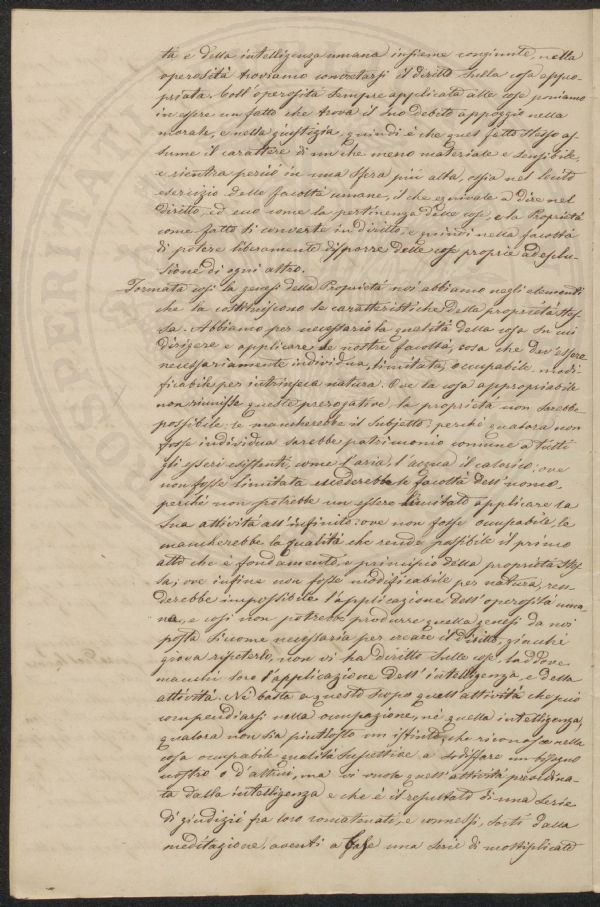 tà e della intelligenza umana insieme congiunte, nella
operosità troviamo concretarsi il diritto sulla cosa appro-
priata. Coll'operosità sempre applicata alle cose poniamo
in essere un fatto che trova il suo debito appoggio nella
morale, e nella giustizia, quindi è che quel fatto stesso as-
sume il carattere di un che meno materiale e sensibile,
e rientra perciò in una sfera più alta, ossia nel lecito
esercizio delle facoltà umane, il che equivale a dire nel
diritto, ed ecco come la pertinenza delle cose, e la Proprietà
come fatto si converte in diritto, e quindi nella facoltà
di potere liberamente disporre delle cose proprie ad esclu-
sione di ogni altro.
Formata così la genesi della Proprietà noi abbiamo negli elementi
che la costituiscono le caratteristiche della proprietà stes-
sa. Abbiamo per necessario la qualità della cosa su cui
dirigere e applicare le nostre facoltà, cosa che dev'essere
necessariamente individua, limitata, occupabile, modi-
ficabile per intrinseca natura. Ove la cosa appropriabile
non riunisse queste prerogative, la proprietà non sarebbe
possibile, le mancherebbe il subjetto; perché qualora non
fosse individua sarebbe patrimonio comune a tutti
gli esseri esistenti, come l'aria, l'acqua il calorico; ove
non fosse limitata escederebbe le facoltà dell'uomo,
perché non potrebbe un essere limitato applicare la
sua attività all'infinito: ove non fosse occupabile, le
mancherebbe la qualità che rende possibile il primo
atto che è fondamento, e principio della proprietà stes-
sa; ove infine non fosse modificabile per natura, ren-
derebbe impossibile l'applicazione dell'operosità uma-
na, e così non potrebbe produrre quella genesi da noi
posta siccome necessaria per creare il diritto, giacché
giova ripeterlo, non vi ha diritto sulle cose, laddove
manchi loro l'applicazione dell'intelligenza, e della
attività. Né basta a questo scopo quell'attività che può
compendiarsi nella occupazione, né quella intelligenza,
qualora non sia piuttosto un istinto, che riconosce nella
cosa occupabile qualità suscettive a sodisfare un bisogno
nostro o d'altrui, ma vi vuole quell'attività preordina-
ta dalla intelligenza e che è il resultato di una serie
di giudizi fra loro concatenati, e connessi, sorti dalla
meditazione, aventi a base una serie di moltiplicate